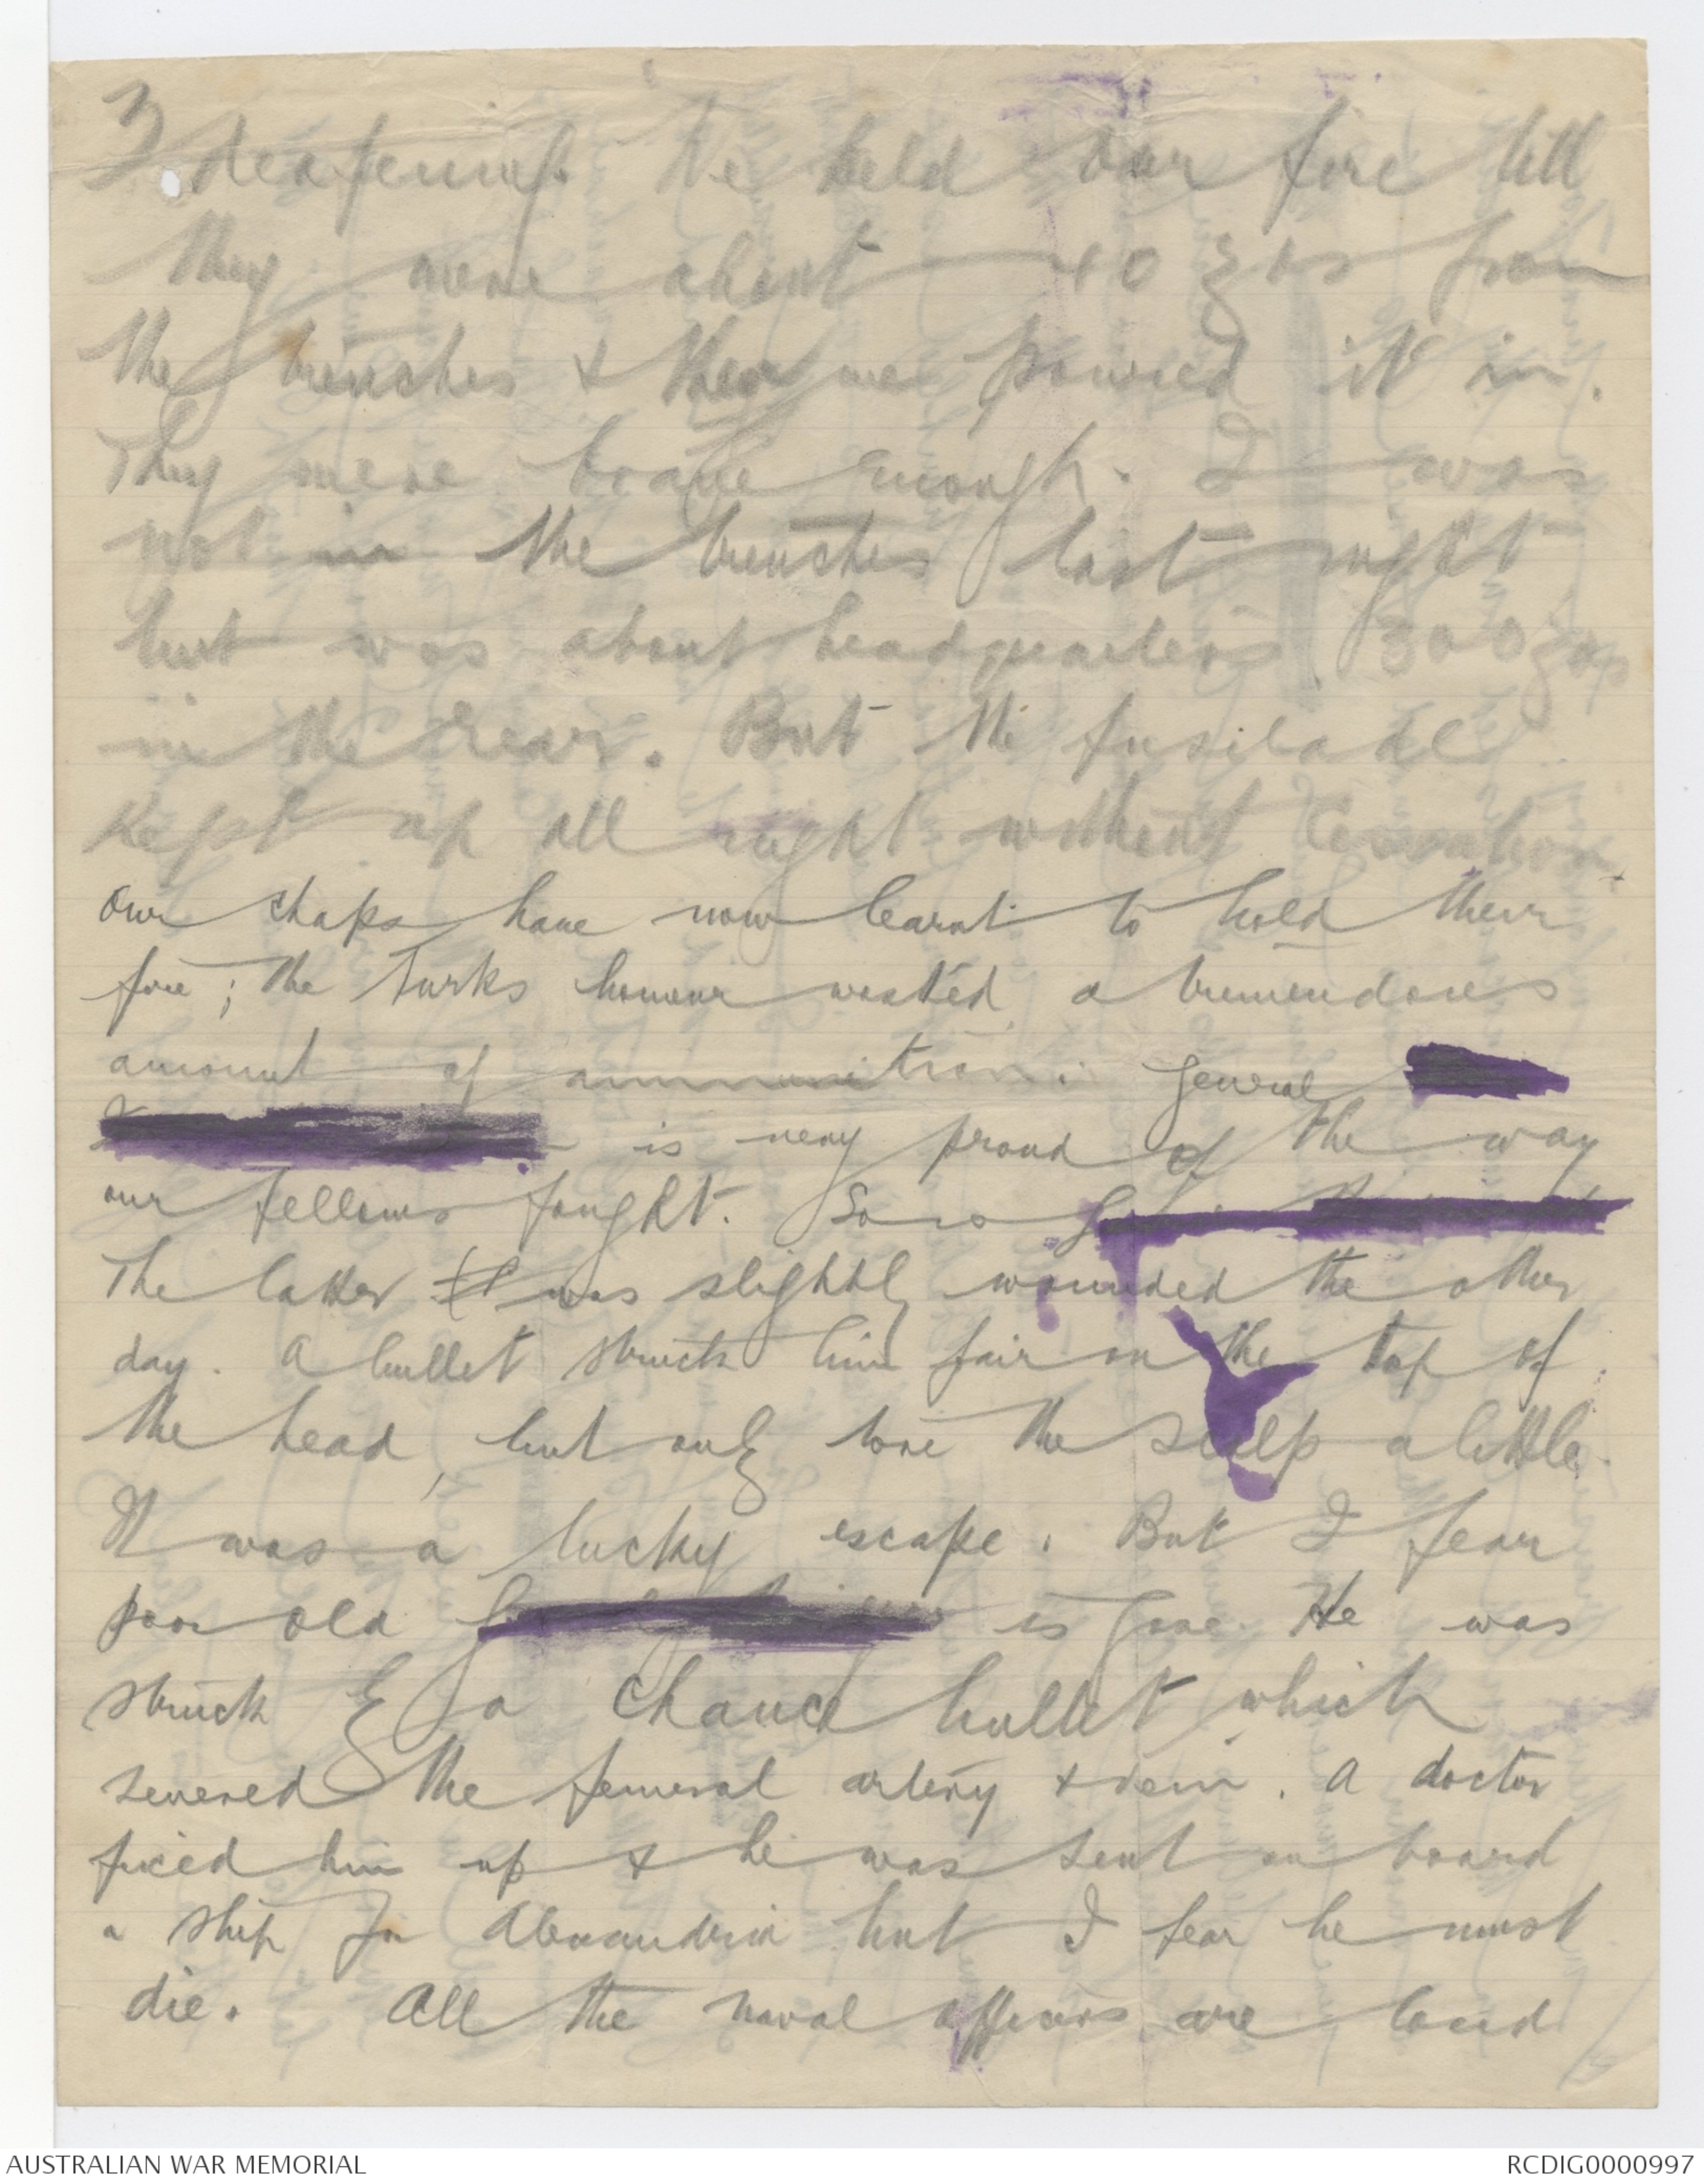 3
deafening. We held our fire till
they were about 40 yds from
the trenches & then we poured it in.
They were brave enough. I was
not in the trenches last night
but was about headquarters 300 yds
in the rear. But the fusilade
kept up all night without cessation.
Our chaps have now learnt to hold their
fire; the Turks however wasted a tremendous
amount of ammunition. General
is very proud of the way
our fellows fought. So is
The latter was slightly wounded the other
day. A bullet struck him fair on the top of
the head, but only tore the scalp a little.
It was a lucky escape. But I fear
poor old is gone. He was
struck by a chance bullet which
severed the femoral artery & vein. A doctor
fixed him up & he was sent on board
a ship for Alexandria but I fear he must
die. All the naval officers are loud
AUSTRALIAN WAR MEMORIAL
RCDIG0000997